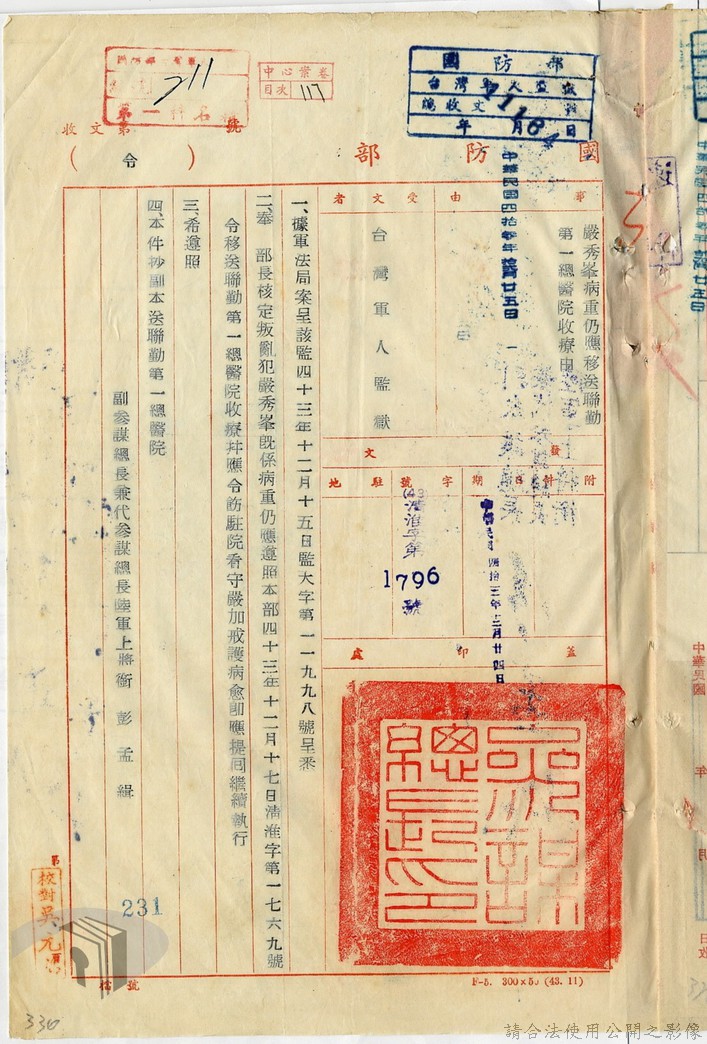 國防部
（令）
收文第 號
711
中心業卷
目次 117
國防部
台灣軍人監獄
總收文 號
年 月 日
中華民國四拾參年 廿五日
事由
嚴秀峯病重仍應移送聯勤
第一總醫院收療由
受文者
台灣軍人監獄
發文
附件
日期
中華民國四拾三年十二月廿四日
字號
(43)清淮字第
1796
號
駐地
蓋印處
參謀總長印
一、據軍法局案呈該監四十三年十二月十五日監大字第一一九九八號呈悉
二、奉 部長核定叛亂犯嚴秀峯既係病重仍應遵照本部四十三年十二月十七日清淮字第一七六九號
令移送聯勤第一總醫院收療并應令飭駐院看守嚴加戒護病愈卽應提回繼續執行
三、希遵照
四、本件抄副本送聯勤第一總醫院
副參謀總長兼代參謀總長陸軍上將銜 彭孟緝
231
校對吳元
檔號
F-5. 300×50 (43. 11)
330
中華民國
年
月
請合法使用公開之影像